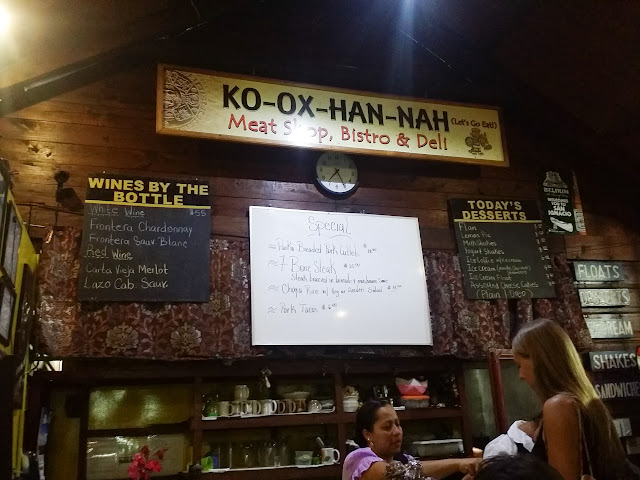 KO-OX-HAN-NAH (Let's Go Eat!)
Meat Shop, Bistro & Deli
WINES BY THE
BOTTLE
White Wine $55
Frontera Chardonnay
Frontera Sauv Blanc
Red Wine
Carta Vieja Merlot
Lazo Cab. Sauv.
Special
Breaded Pork Cutlets
T Bone Steak
Steak
Chaya Rice w/ Veg or Garden Salad
Pork Tacos
TODAY'S
DESSERTS
Flan
Lemon Pie
Milk Shakes
Yogurt Shakes
Ice Cream
Ice Cream Float
Assorted Cheese Cakes
(Plain, Oreo)
BELIKIN
WELCOMES
YOU TO
SAN
IGNACIO
FLOATS
CREAM
SHAKES
SANDWICHE